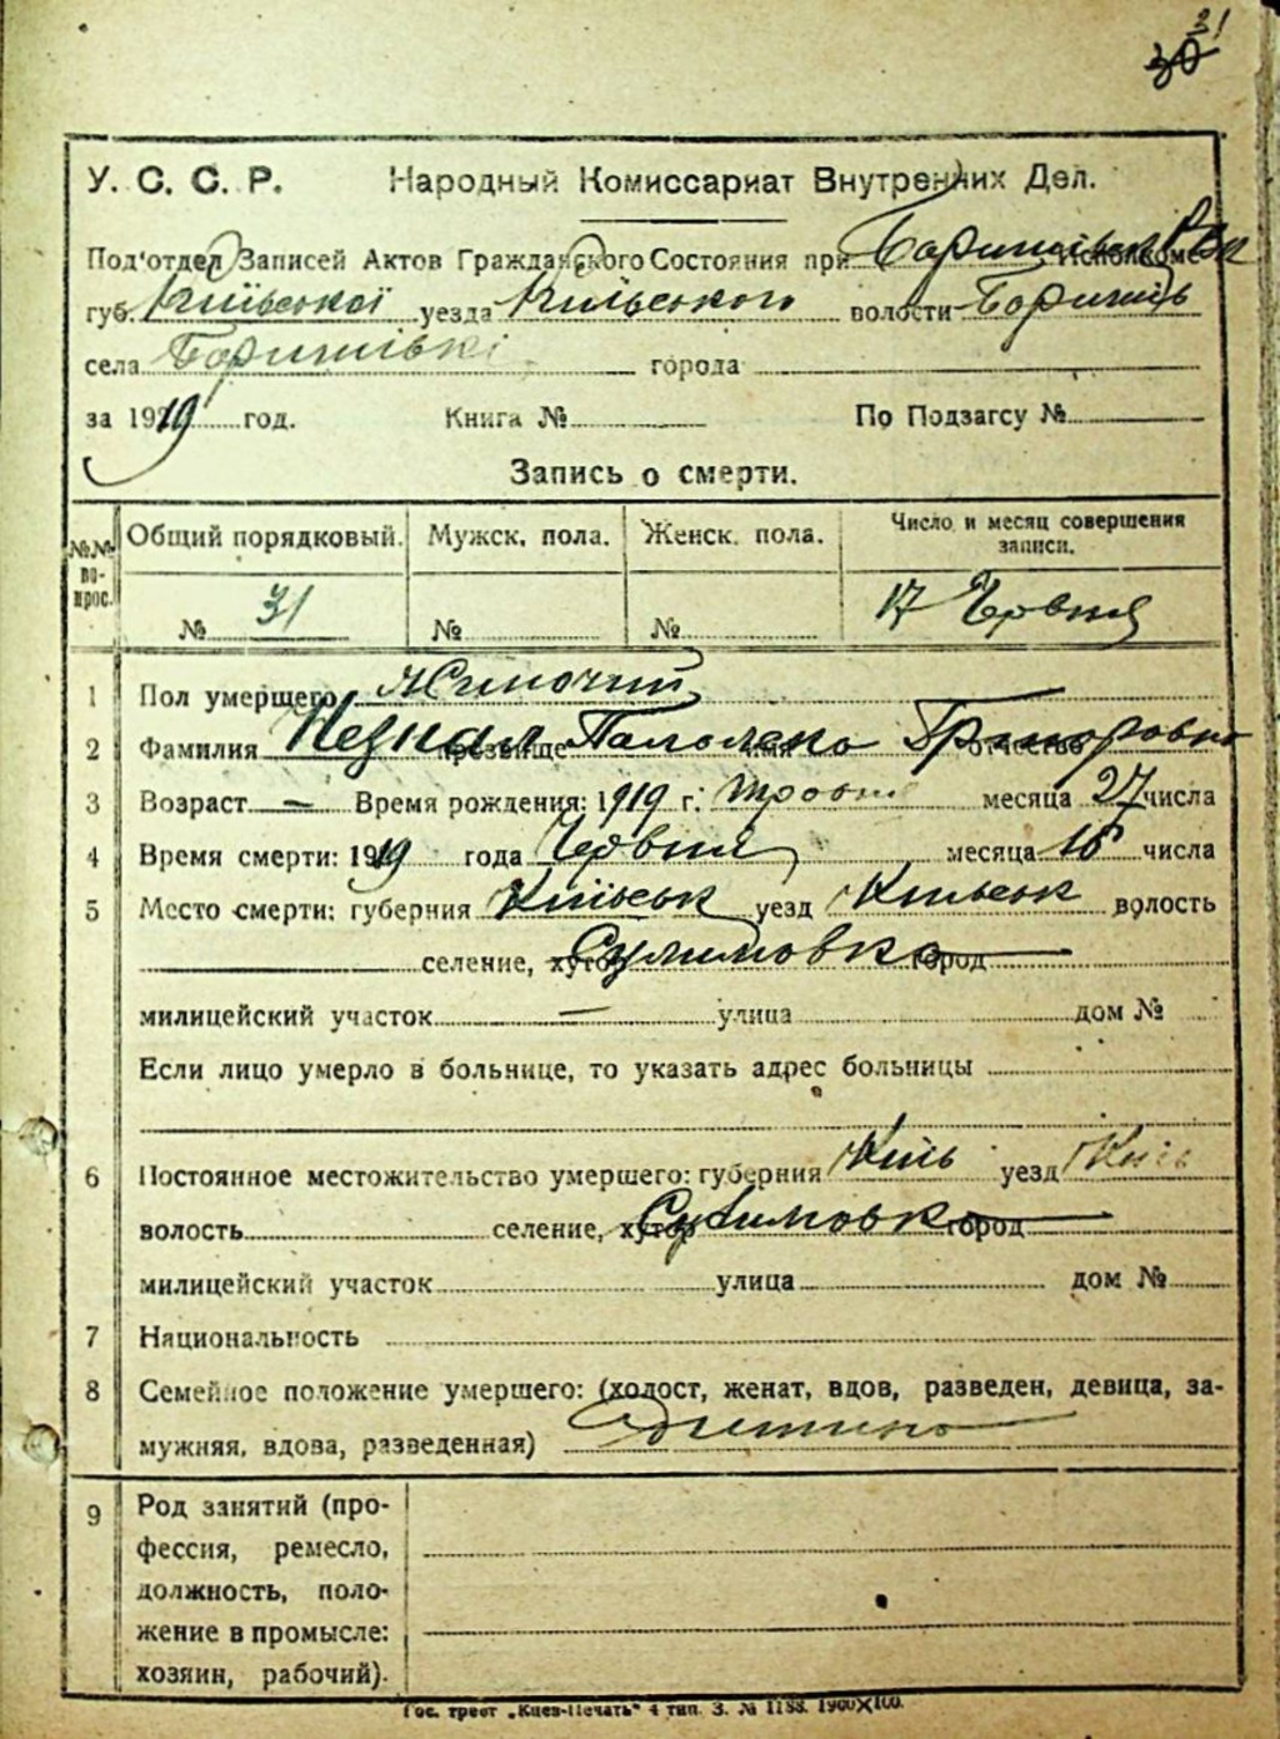 31
30
У. С. С. Р. Народный Комиссариат Внутренних Дел.
Под'отдел Записей Актов Гражданского Состояния при Исполкоме
губ. Київської уезда Київського волости Баришів
села Баришівкі города
за 1919 год. Книга № По Подзагсу №
Запись о смерти.
№№ вопрос. Общий порядковый. Мужск. пола. Женск. пола. Число и месяц совершения записи.
№ 31 № № 17 Червня
1 Пол умершего Жиночий
2 Фамилия прозвище имя отчество Григоровна
3 Возраст — Время рождения: 1919 г. Травня месяца 27 числа
4 Время смерти: 1919 года Червня месяца 16 числа
5 Место смерти: губерния Київськ уезд Київськ волость
селение, хутор Сулимовка город
милицейский участок — улица дом №
Если лицо умерло в больнице, то указать адрес больницы
6 Постоянное местожительство умершего: губерния Київ уезд Київ
волость селение, хутор Сулимовка город
милицейский участок улица дом №
7 Национальность
8 Семейное положение умершего: (холост, женат, вдов, разведен, девица, за-
мужняя, вдова, разведенная) Дитина
9 Род занятий (про-
фессия, ремесло,
должность, поло-
жение в промысле:
хозяин, рабочий).
Гос. трест „Киев-Печать" 4 тип. З. № 1188. 1900X100.